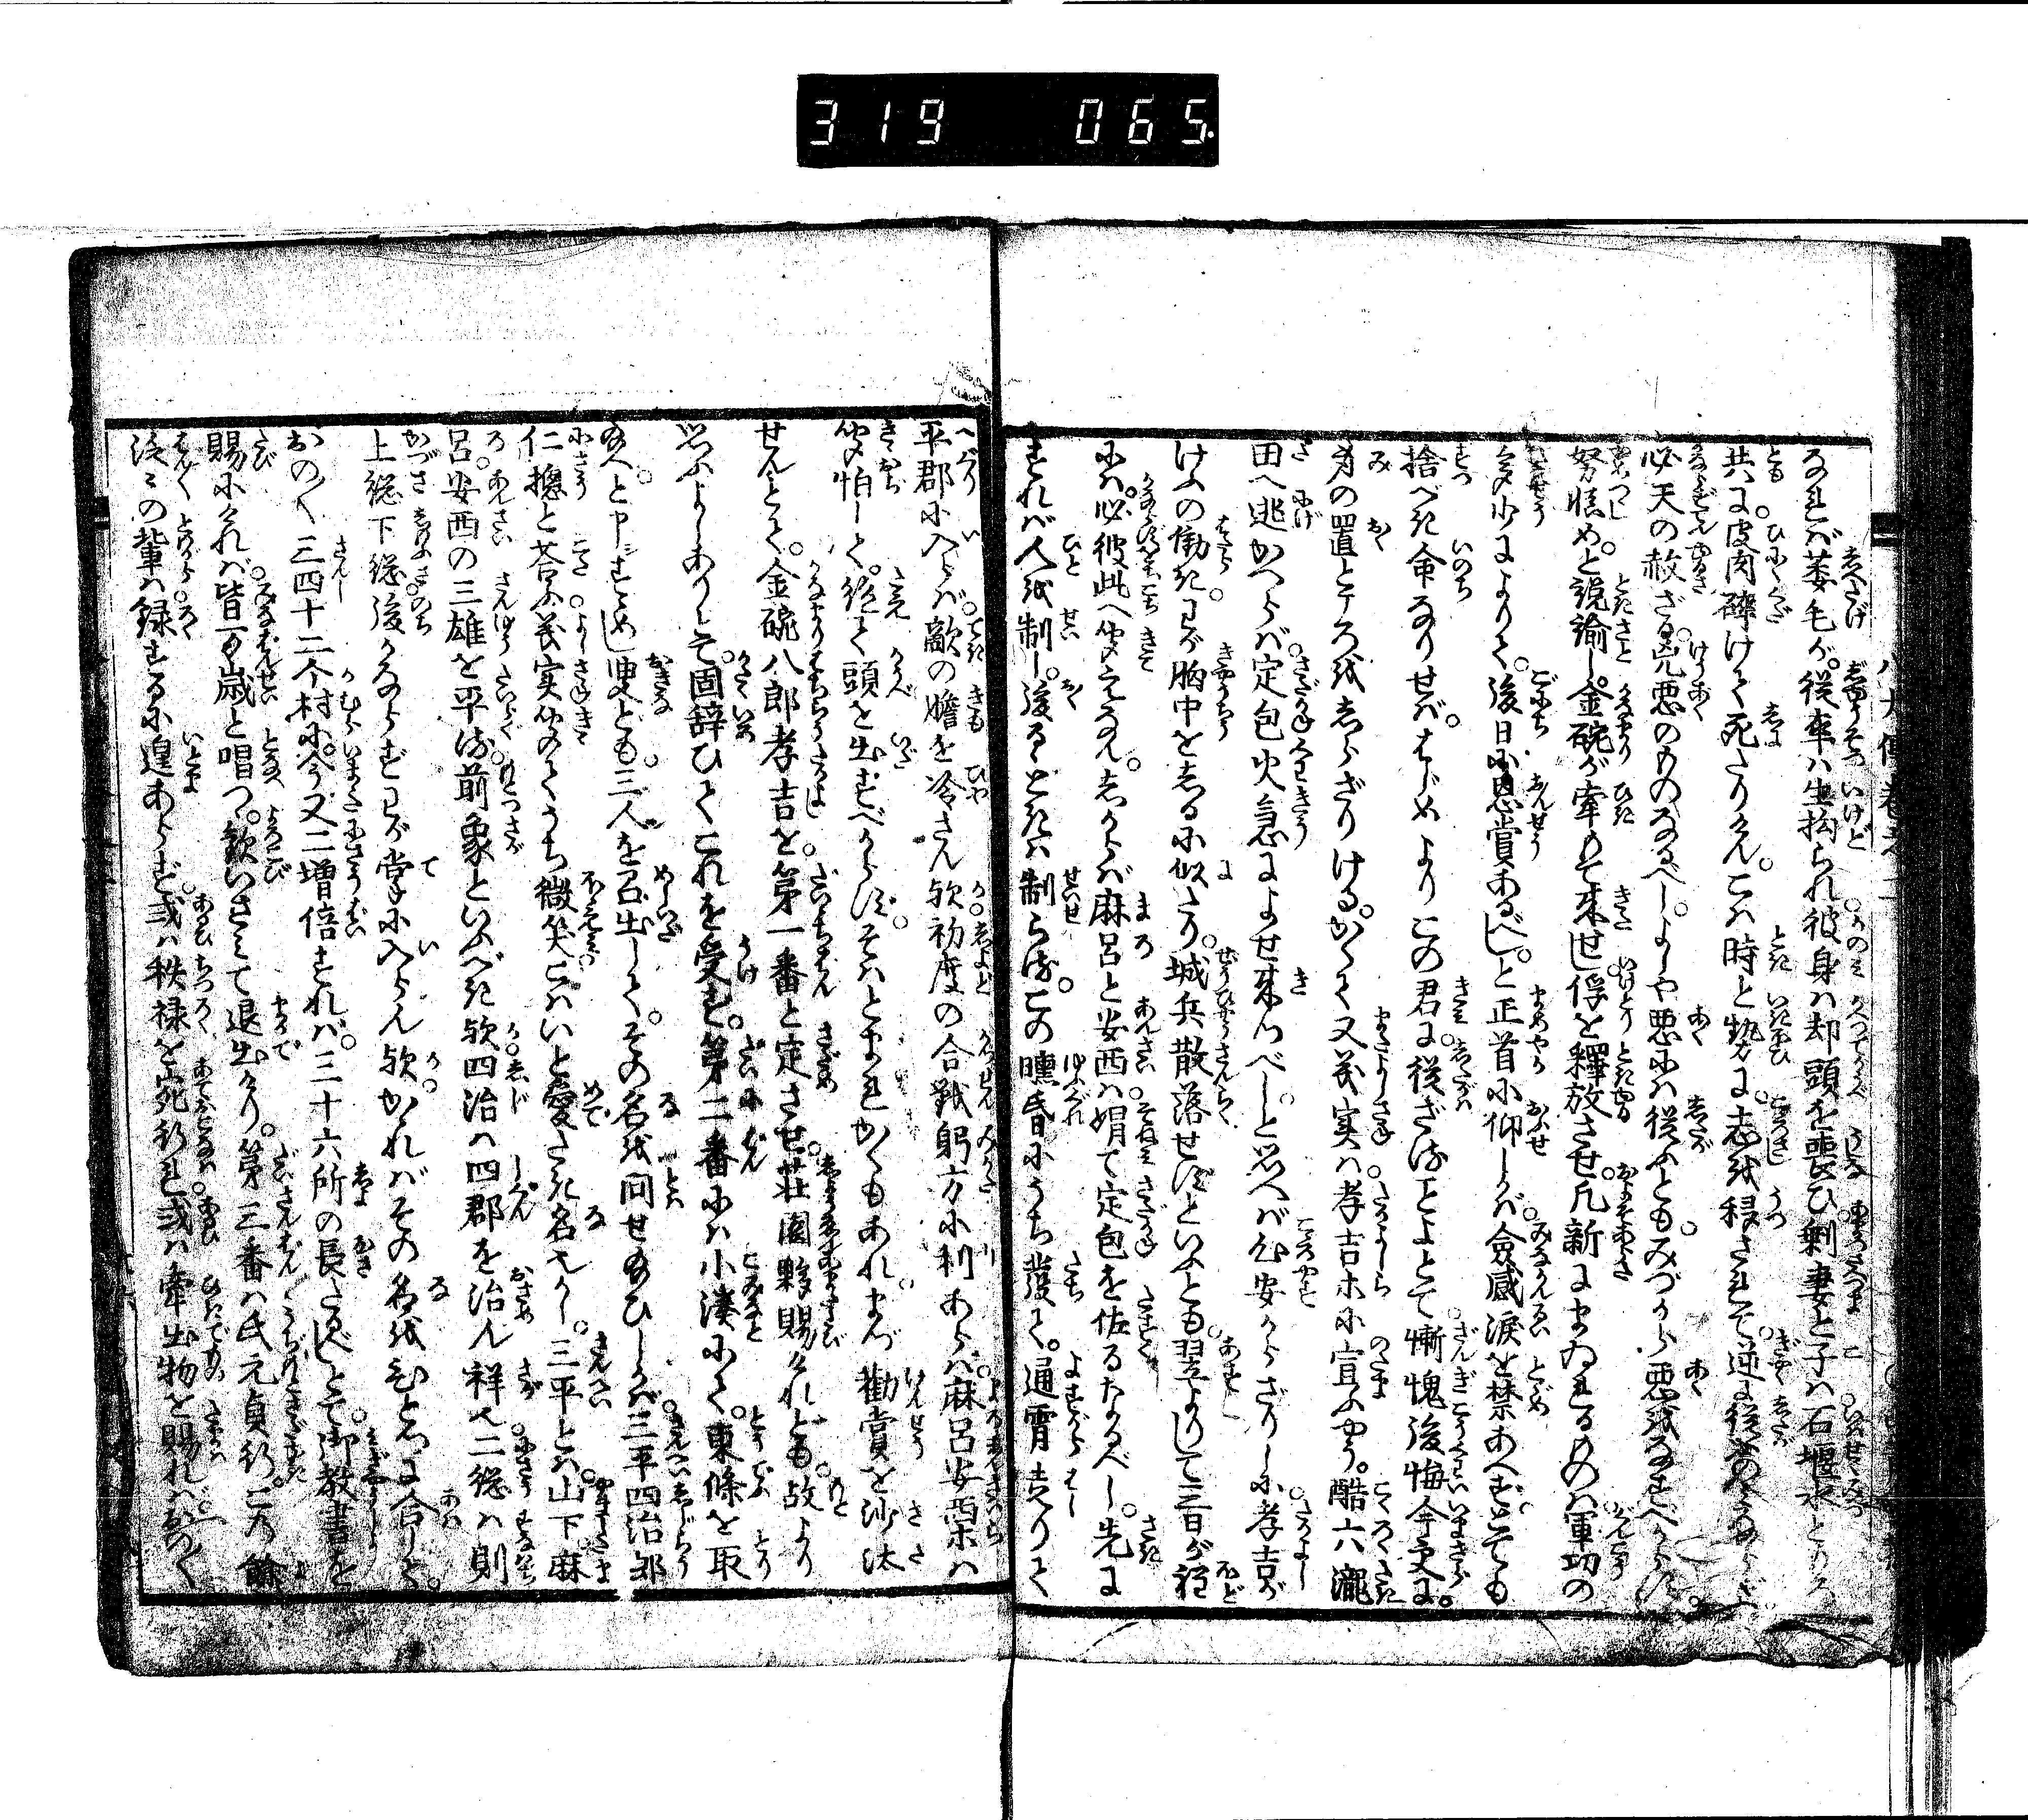 319 065.
八犬傳巻
なれば萎毛が從卒ハ生拘られ彼身ハ却頭を喪ひ剰妻と子ハ石堰水とゝも
共に皮肉碎けて死たりけん。こハ時と勢に志を移されて逆に從ふの
必天の赦ざる兇悪のものなるべし。よしや悪にハ從ふとも。みづから悪をなすべからず。
努愼めと説諭し。金碗が牽もて來せし俘を釋放させ。凡新にまゐれるものハ軍功の
多少によりて。後日に恩賞あるべし。と正首に仰しかバ。僉感涙を禁あへず。とても
捨べき命なりせバ。はじめよりこの君に。從ざることよとて慚愧後悔今更に。
身の置ところをしらざりける。かくて又義実ハ孝吉ホに宣ふやう。酷六瀧
田へ逃かへらバ定包火急によせ來つべし。と思へバ心安からざりしに孝吉が
けふの働き。わが胸中をしるに似たり。城兵散落せずといふとも。翌よりして三日が程
にハ。必彼此へ聞えなん。しからバ麻呂と安西ハ媚て定包を佐るなるべし。先に
すれバ人を制し。後るゝときハ制らる。この曛昏にうち發て。通宵走りて
平郡に入らバ。敵の膽を冷さん歟初度の合戰躬方に利あらバ。麻呂安西ホハ
聞怕して。絶て頭を出すべからず。そハとまれかくもあれ。まづ勸賞を沙汰
せんとて。金碗八郎孝吉を。第一番と定させ。荘園夥賜けれども。故より
思ふよしありとて。固辞ひてこれを受ず。第二番にハ小湊にて。東條を取
給へ。と申シすゝめし叟ども。三人を召出して。その名を問せ給ひしかバ。三平四治郎
仁摠と荅ふ。義実聞のてうち微笑。こハいと愛たき名なりかし。三平とハ。山下麻
呂。安西の三雄を平る。前象といふべき歟四治ハ四郡を治ん祥也二總ハ則
上総下総。後ならずわが掌に入らん歟。かゝれバその名をひとつに合して。
おの〳〵三四十二个村に。今又二増倍すれバ。三十六所の長たるべしとて。御教書を
賜にければ。皆万歳と唱つゝ。歓いさみて退出けり。第三番ハ氏元貞行。この餘
泛々の輩ハ録するに遑あらず。或ハ秩禄を宛行れ或ハ牽出物を賜れバ。おの〳〵